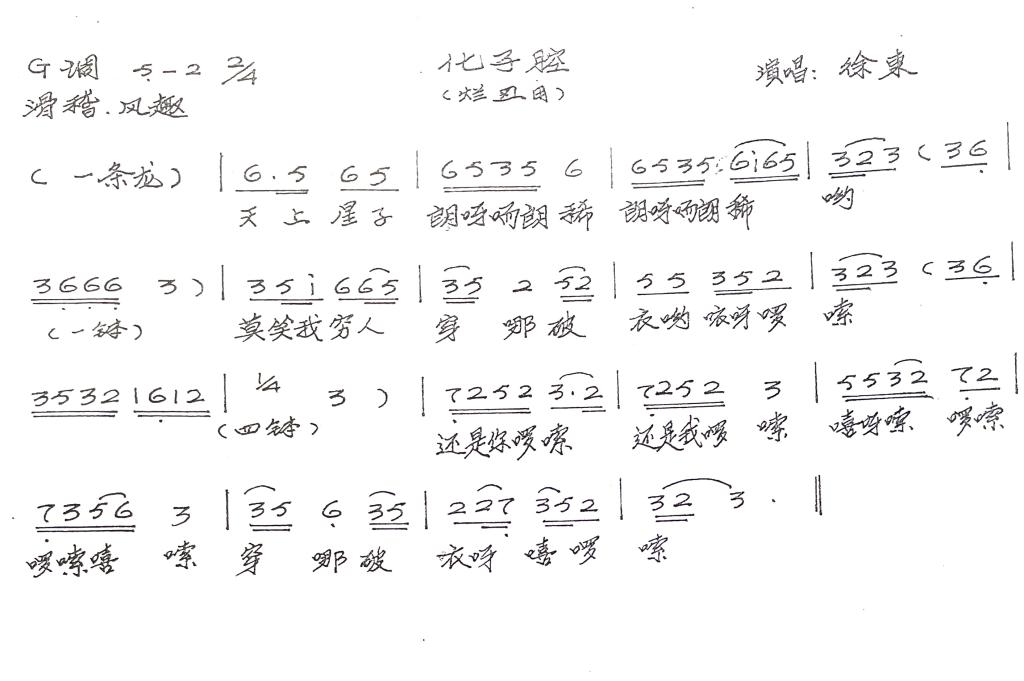 G调 5-2 2/4 化子腔 演唱: 徐東
滑稽.风趣 (烂丑白)
(一条龙) | 6.5 65 | 6535 6 | 6535 6i65 | 323 (36 |
天上星子 朗呀哂朗稀 朗呀哂朗稀 哟
3666 3) | 35i 665 | 35 2 52 | 55 352 | 323 (36 |
(一钵) 莫笑我穷人 穿哪破 衣哟咳呀啰 嗦
3532 1612 | 1/4 3 ) | 7252 3.2 | 7252 3 | 5532 72 |
(四钵) 还是你啰嗦 还是我啰嗦 嘻呀嗦 啰嗦
7356 3 | 35 6 35 | 227 352 | 32 3. ‖
啰嗦嘻 嗦 穿哪破 衣呀嘻啰 嗦